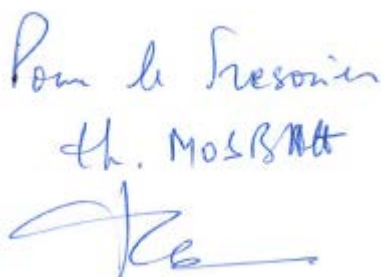 Pour le Tresorier
th. MOSBAH